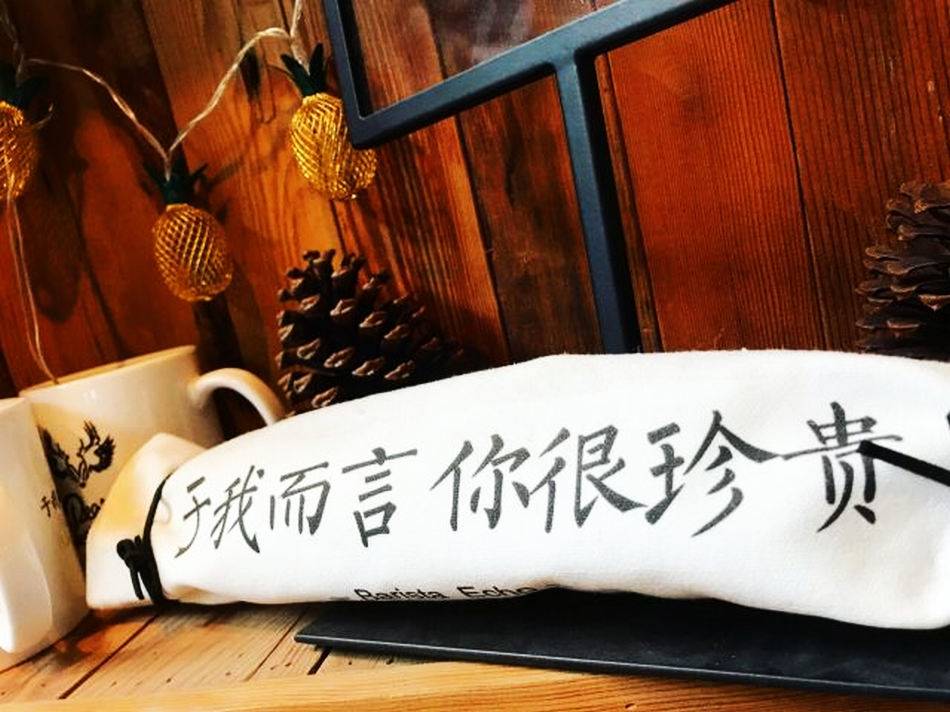 于我而言 你很珍贵
Barista Echo